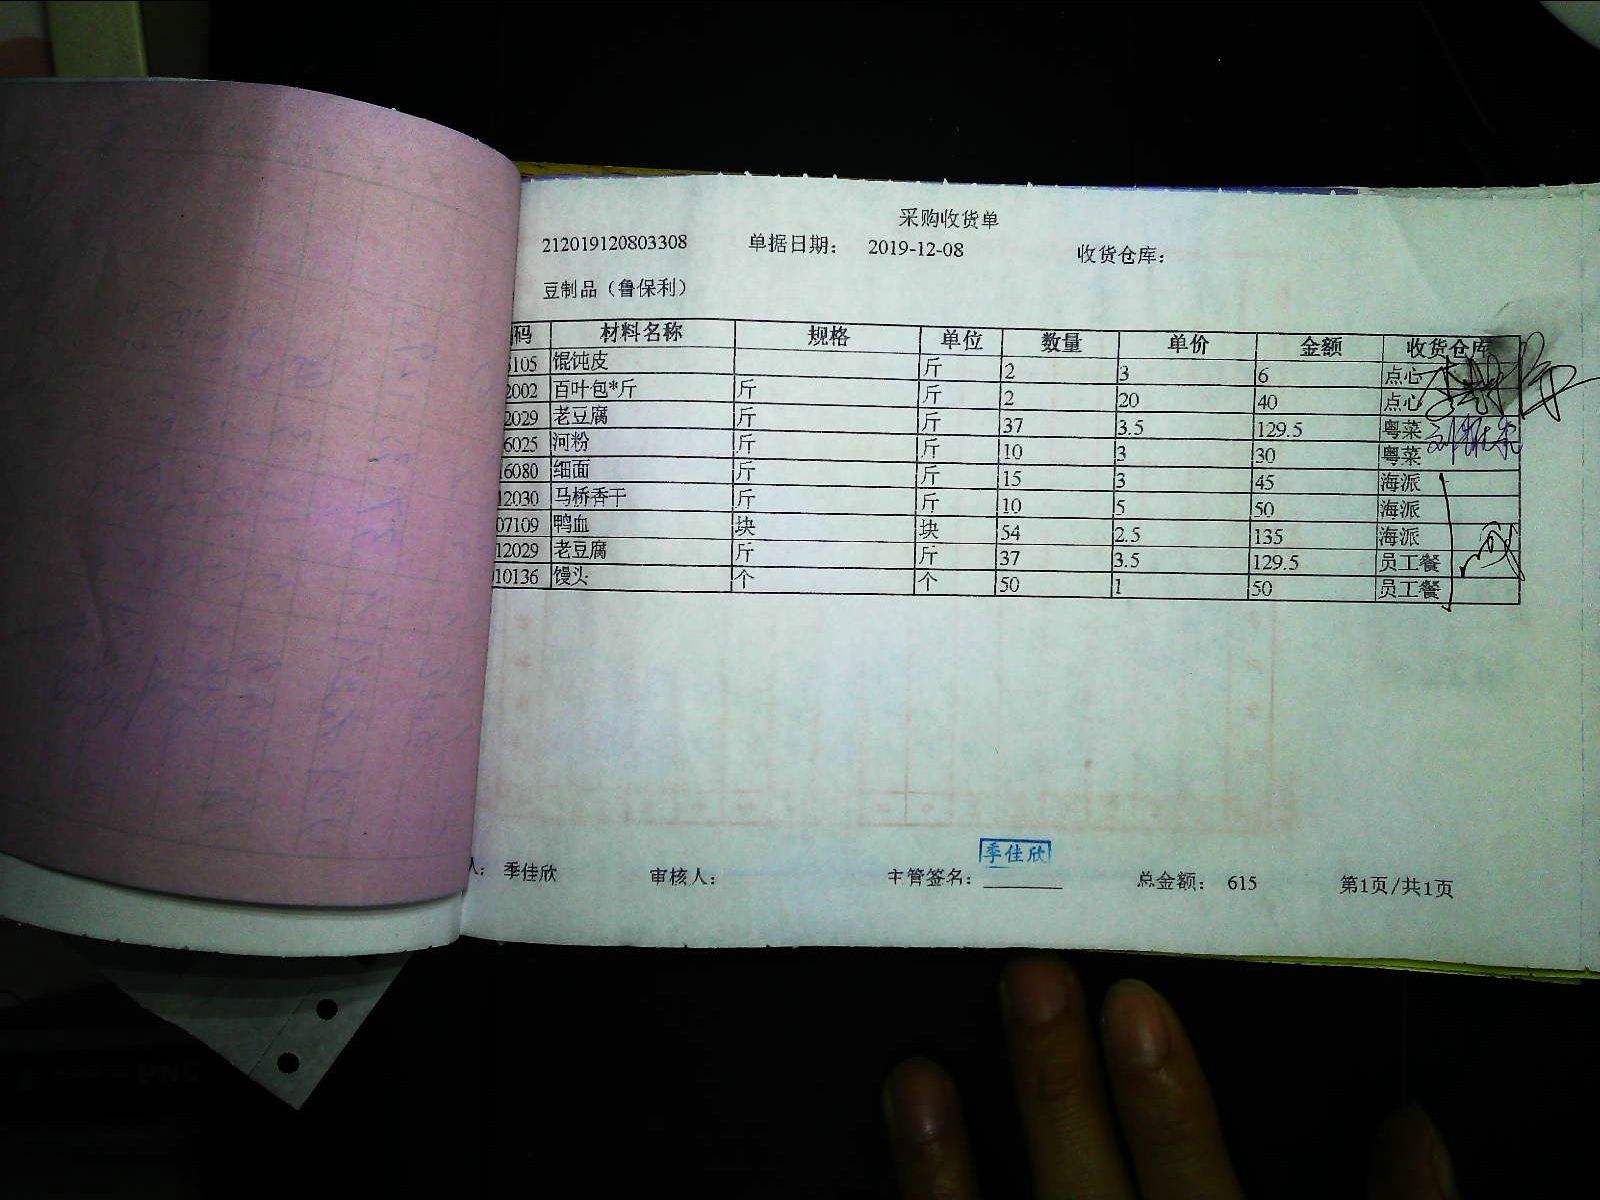 采购收货单
212019120803308 单据日期： 2019-12-08 收货仓库：
豆制品（鲁保利）
码 材料名称 规格 单位 数量 单价 金额 收货仓库
105 馄饨皮 斤 2 3 6 点心
2002 百叶包*斤 斤 斤 2 20 40 点心
2029 老豆腐 斤 斤 37 3.5 129.5 粤菜
6025 河粉 斤 斤 10 3 30 粤菜
6080 细面 斤 斤 15 3 45 海派
12030 马桥香干 斤 斤 10 5 50 海派
07109 鸭血 块 块 54 2.5 135 海派
12029 老豆腐 斤 斤 37 3.5 129.5 员工餐
10136 馒头 个 个 50 1 50 员工餐
季佳欣
人： 季佳欣 审核人： 主管签名： 总金额： 615 第1页/共1页